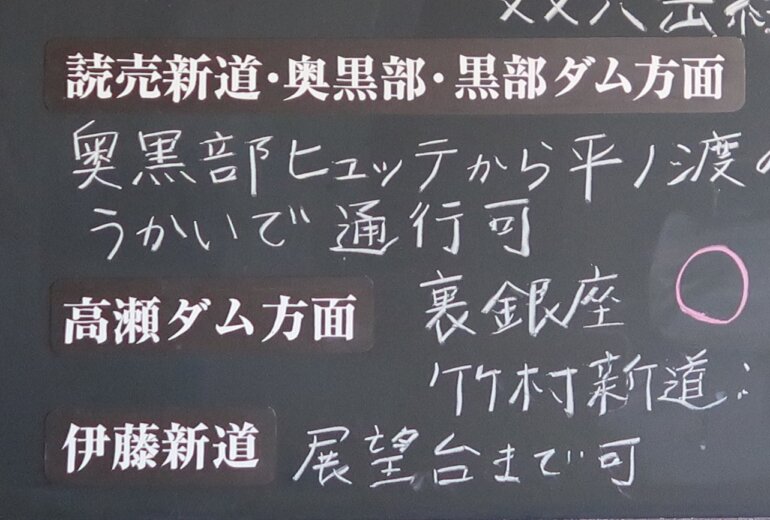 読売新道・奥黒部・黒部ダム方面
奥黒部ヒュッテから平ノ渡の
うかいで通行可
高瀬ダム方面 裏銀座 ○
竹村新道:
伊藤新道 展望台まで可